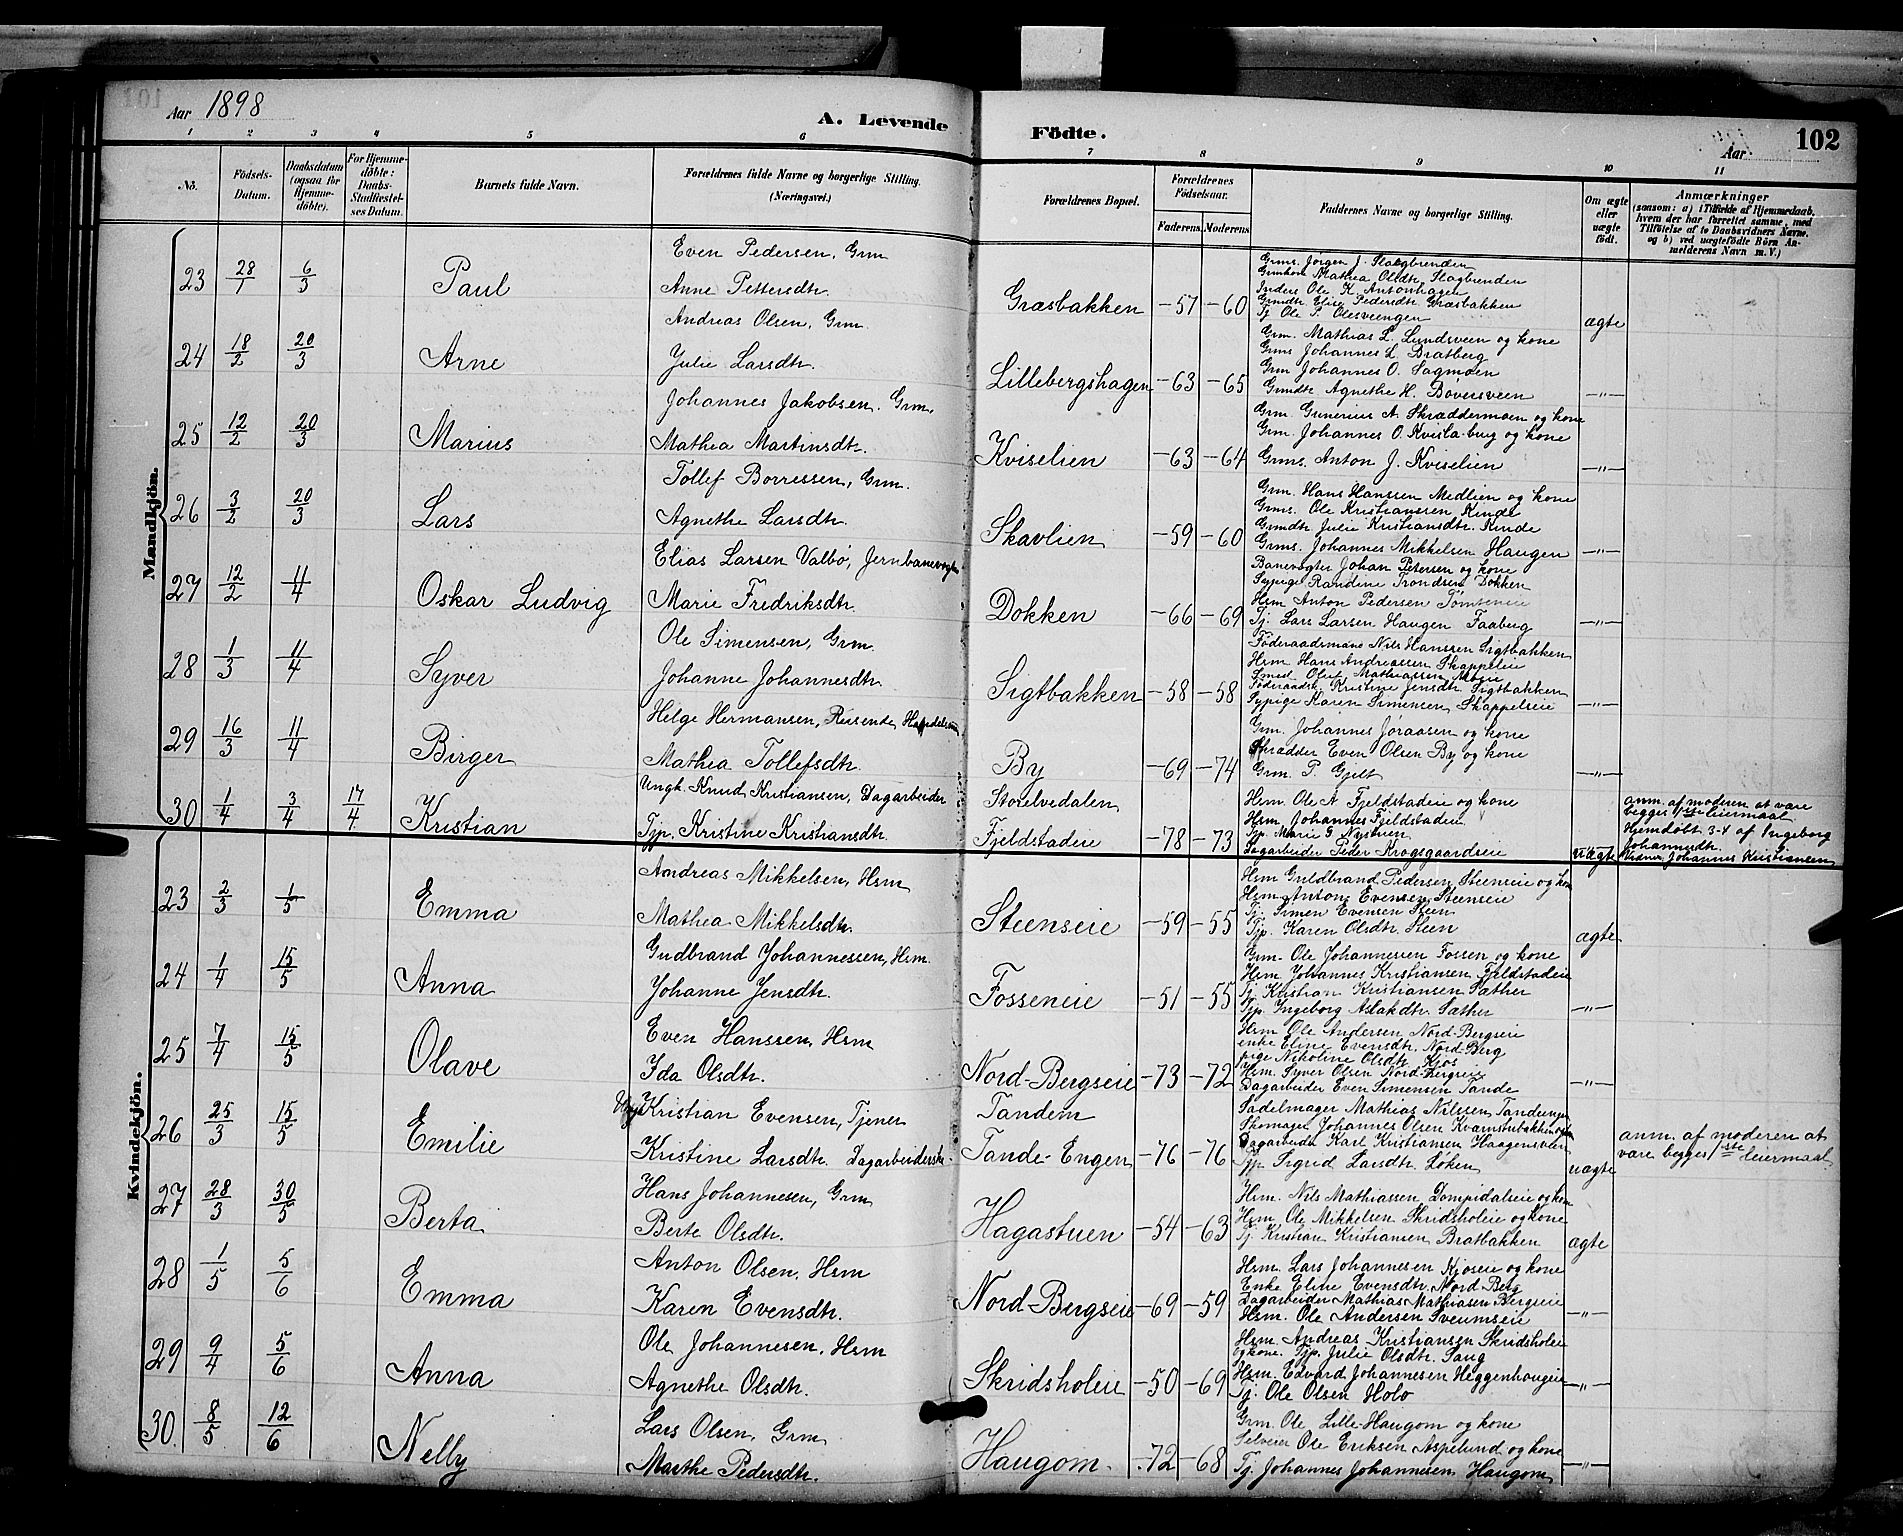 Aar 1898
A. Levende Födte.
Aar
102
1 2 3 4 5 6 7 8 9 10 11
No.
Födsels-Datum.
Daabsdatum (ogsaa for Hjemme-döbte).
For Hjemme-döbte: Daabs-Stadfæstel-ses Datum.
Barnets fulde Navn.
Forældrenes fulde Navne og borgerlige Stilling. (Næringsvei.)
Forældrenes Bopæl.
Forældrenes Födselsaar.
Faderens. Moderens.
Faddernes Navne og borgerlige Stilling.
Om ægte eller uægte födt.
Anmærkninger
(saasom: a) i Tilfælde af Hjemmedaab, hvem der har forrettet samme, med Tilföielse af to Daabsvidners Navne, og b) ved uægtefödte Börn An-melderens Navn m. V.)
Mandkjön.
23 28/1 6/3 Paul
Even Pedersen, Grm
Anne Pettersdtr.
Græsbakken -57 -60
Grms. Jörgen J. Slagbrenden
Grmkone Mathea Olsdtr. Slagbrenden
Inders Ole K. Antonhagen
Grmdtr. Elise Pedersdtr. Græsbakken
Tj. Ole P. Olesveengen
ægte
24 18/2 20/3 Arne
Andreas Olsen, Grm.
Julie Larsdtr.
Lillebergshagen -63 -65
Grm. Mathias L. Lundsveen og kone
Grms Johannes L. Bratberg
Grm Johannes O. Sagmoen
Grmdtr Agnethe H. Bøversveen
-"-
25 12/2 20/3 Marius
Johannes Jakobsen. Grm.
Mathea Martinsdtr.
Kviselien -63 -64
Grm. Gunerius A. Skræddermoen og kone
Grm. Johannes O. Kvislaberg og kone
Grms. Anton J. Kviselien
-"-
26 3/2 20/3 Lars
Tollef Borressen, Grm.
Agnethe Larsdtr.
Skavlien -59 -60
Grm. Hans Hanssen Medlien og kone
Grms. Ole Kristianssen Rinde
Grmdtr Julie Kristiansdtr. Rinde
Grms. Johannes Mikkelsen Haugen
-"-
27 12/2 11/4 Oskar Ludvig
Elias Larsen Valbö, Jernbanevogter
Marie Fredriksdtr.
Dokken -66 -69
Banevogter Johan Petersen og kone
Sypige Randine Trondsen Dokken
Hsm Anton Pedersen Tømteneie
Tj. Lars Larsen Haugen Faaberg
-"-
28 1/3 11/4 Syver
Ole Simensen, Grm.
Johanne Johannesdtr.
Sigtbakken -58 -58
Föderaadsmand Nils Hanssen Sigtbakken
Hsm Hans Andreassen Skappeleie
Smed Oluf Mathiassen Moeie
Föderaadsk Kristine Jensdtr. Sigtbakken
Sypige Karen Simensen Skappelseie
-"-
29 16/3 11/4 Birger
Helge Hermansen, Reisende Handelsm
Mathea Tollefsdtr.
By -69 -74
Grm. Johannes Jöraasen og kone
Skrædder Even Olsen By og kone
Grm. P. Gjelt
-"-
30 1/4 3/4 17/4 Kristian
Ungk. Knud Kristiansen, Dagarbeider
Tjp. Kristine Kristiansdtr.
Storelvedalen
Fjeldstadeie -78 -73
Hsm. Ole A. Fjeldstadeie og kone
Hsm. Johannes Fjeldstadeie
Tjp. Marie G. Nystuen
Dagarbeider Peder Krogsgaardseie
uægte
anm. af moderen at være
begges 1ste leiermaal
Hjemdöbt 3-4 af Ingeborg
Johannesdtr.
Vidner Johannes Kristiansen
Kvindekjön.
23 2/3 1/5 Emma
Andreas Mikkelsen, Hsm
Mathea Mikkelsdtr.
Steenseie -59 -55
Hsm Guldbrand Pedersen Steenseie og kone
Hsm Anton Evensen Steenseie
Tj. Simen Evensen Steen
Tjp. Karen Olsdtr. Steen
ægte
24 1/4 15/5 Anna
Gudbrand Johannessen, Hsm.
Johanne Jensdtr.
Fosseneie -51 -55
Grm. Ole Johannessen Fossen og kone
Hsm Johannes Kristiansen Fjeldstadeie
Tj. Kristian Kristiansen Sæther
Tjp. Ingeborg Aslakdtr. Sæther
-"-
25 7/4 15/5 Olave
Even Hanssen, Hsm
Ida Olsdtr.
Nord-Bergseie -73 -72
Hsm Ole Andersen Nord-Bergseie
enke Eline Evensdtr. Nord-Berg
pige Nikoline Olsdtr. Kjos
Hsm. Syver Olsen Nord-Bergseie
Dagarbeider Even Simensen Tande
-"-
26 25/3 15/5 Emilie
Ungk Kristian Evensen, Tjener
Kristine Larsdtr. Dagarbeiderske
Tandem
Tande-Engen -76 -76
Sadelmager Mathias Nilssen Tandengen
Skomager Johannes Olsen Kvarnstubakken
Dagarbeider Karl Kristiansen Haagensveen
Tjp Sigrid Larsdtr. Løken
uægte
anm. af moderen at
være begges 1ste leiermaal
27 28/3 30/5 Berta
Hans Johannesen, Grm
Berte Olsdtr.
Hagastuen -54 -63
Hsm. Nils Mathiassen Dompidaleie og kone
Hsm. Ole Mikkelsen Skridsholeie og kone
Tj. Kristian Kristiansen Bratbakken
ægte
28 1/5 5/6 Emma
Anton Olsen, Hsm
Karen Evensdtr.
Nord-Bergseie -69 -59
Hsm. Lars Johannesen Kjoseie og kone
Enke Eline Evensdtr. Nord-Berg
Dagarbeider Mathias Mathiasen Bergseie
Hsm. Ole Andersen Sveumseie
-"-
29 9/4 5/6 Anna
Ole Johannesen, Hsm
Agnethe Olsdtr.
Skridsholeie -50 -69
Hsm. Andreas Kristiansen Skridsholeie
og kone. Tjp. Julie Olsdtr. Saug
Hsm. Edvard Johannesen Heggenhaugeie
Tj. Ole Olsen Holo
-"-
30. 8/5 12/6 Nelly
Lars Olsen, Grm
Marthe Pedersdtr.
Haugom. -72 -68
Grm. Ole Lille-Haugom og kone
Selveier Ole Eriksen Aspelund og kone
Tj. Johannes Johannesen Haugom
-"-